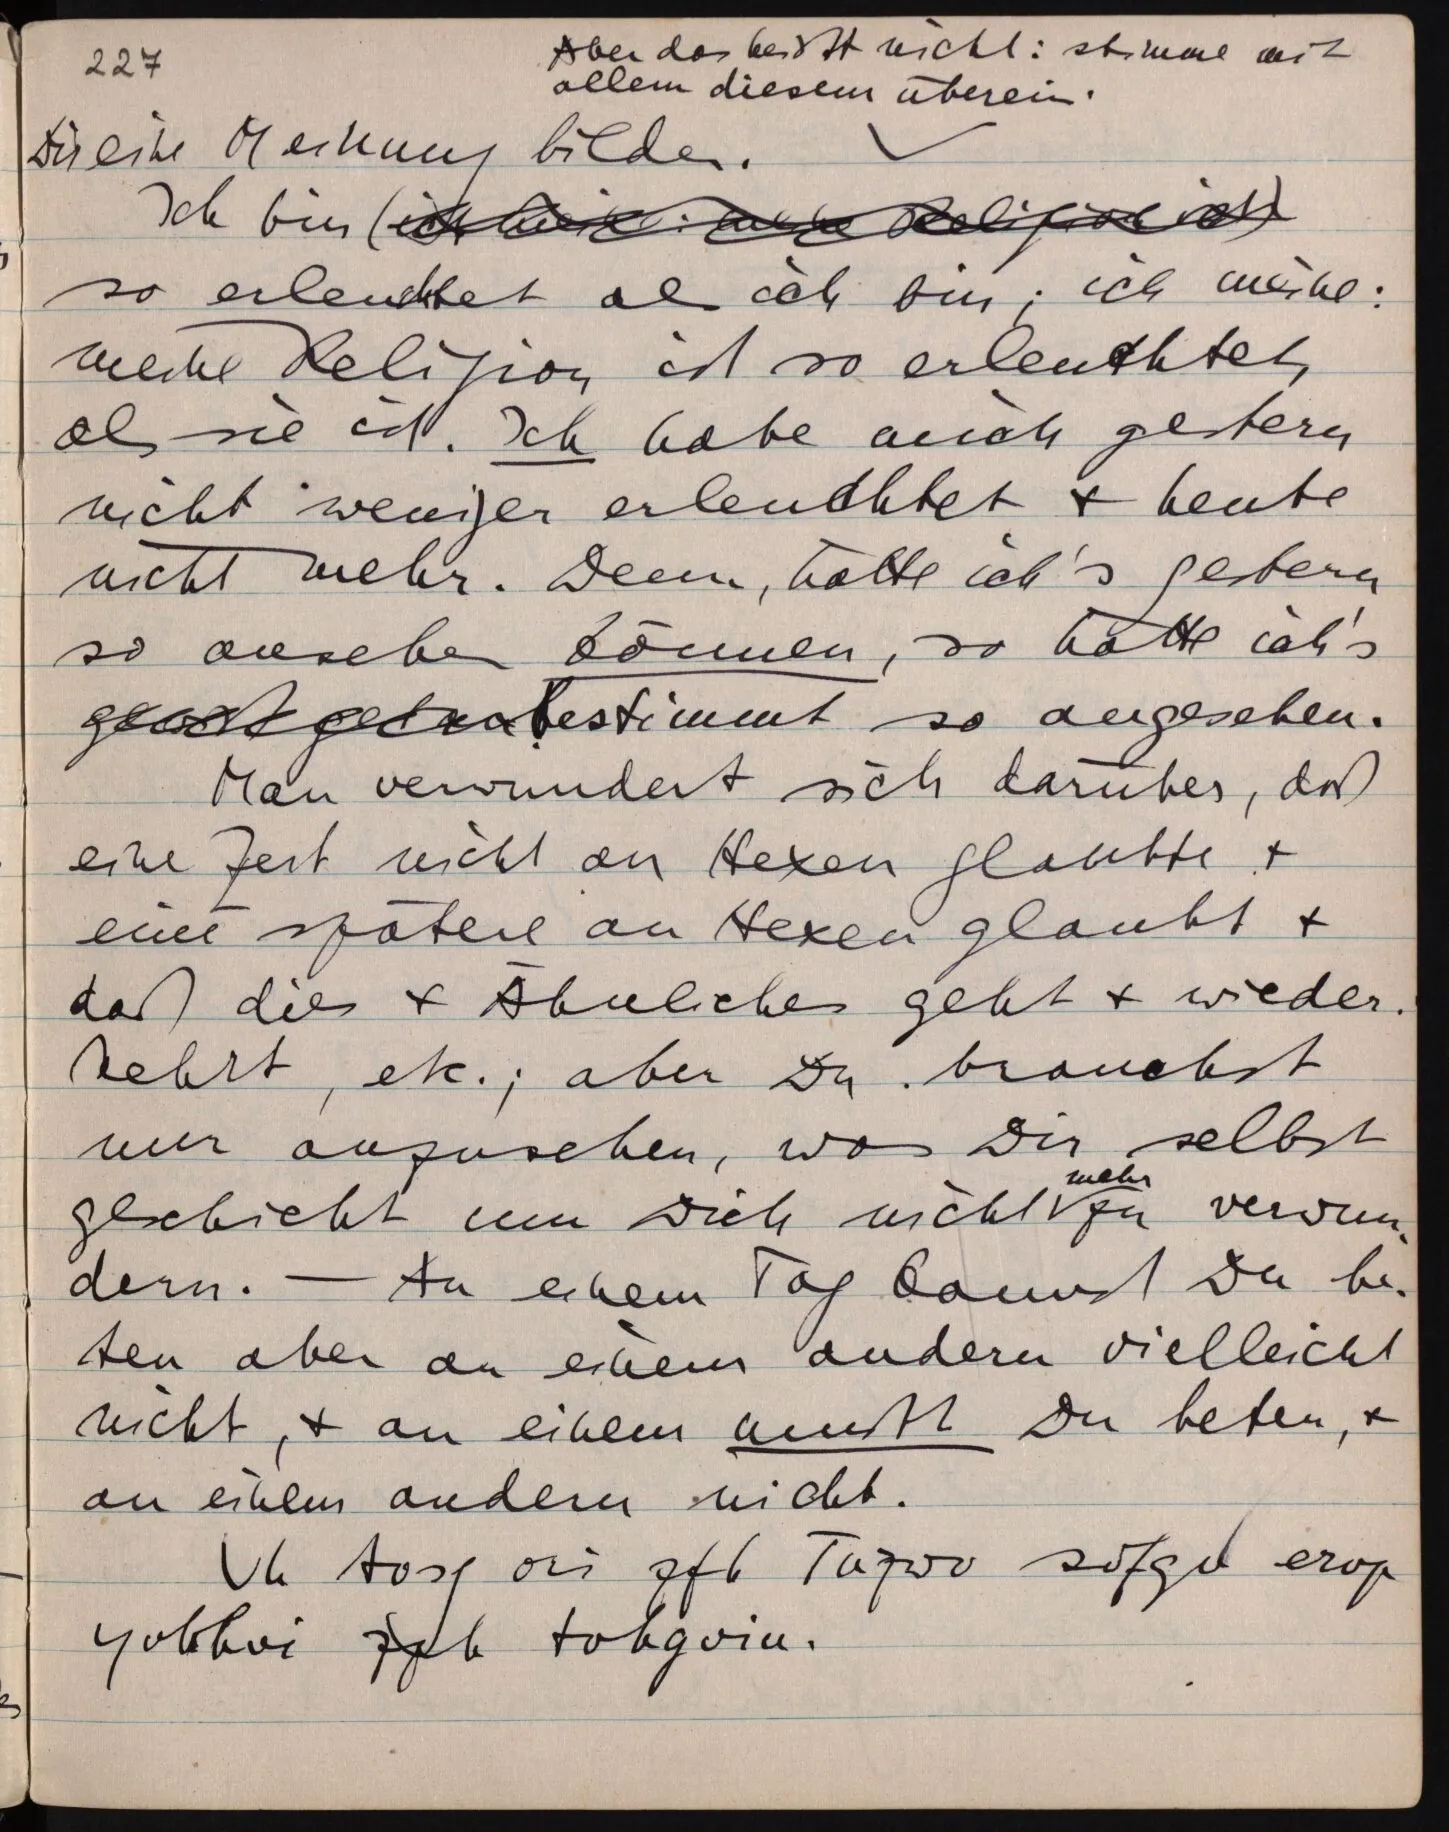 227
Aber das heißt nicht: stimme mit
allem diesem überein.
Dir eine Meinung bilden.
Ich bin (ich meine: meine Religion ist)
so erleuchtet als ich bin; ich meine:
meine Religion ist so erleuchtet,
als sie ist. Ich habe mich gestern
nicht weniger erleuchtet & heute
nicht mehr. Denn, hätte ich's gestern
so ansehen können, so hätte ich's
bestimmt so angesehen.
Man verwundert sich darüber, daß
eine Zeit nicht an Hexen glaubte &
eine spätere an Hexen glaubt &
daß dies & Ähnliches geht & wieder-
kehrt, etc.; aber Du brauchst
nur anzusehen, was Dir selbst
geschieht um Dich nicht mehr zu verwun-
dern. — An einem Tag kannst Du be-
ten aber an einem andern vielleicht
nicht, & an einem mußt Du beten, &
an einem andern nicht.
Vh tosg ori zfh Tazwo